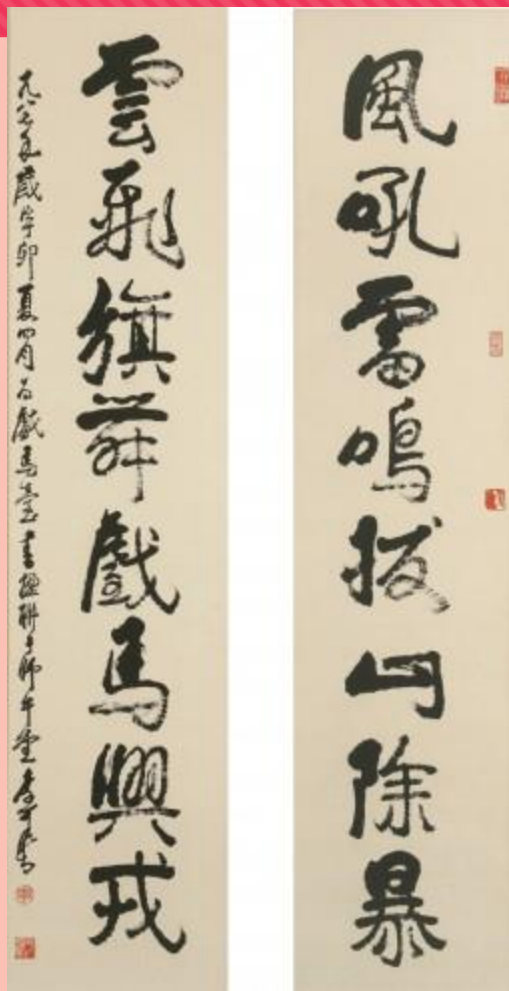 風吼雷鳴拔山除暴
雲飛旗舞戲馬興戎
一九八七年歲丁卯夏四月为戲馬臺書楹聯于師牛堂李可染